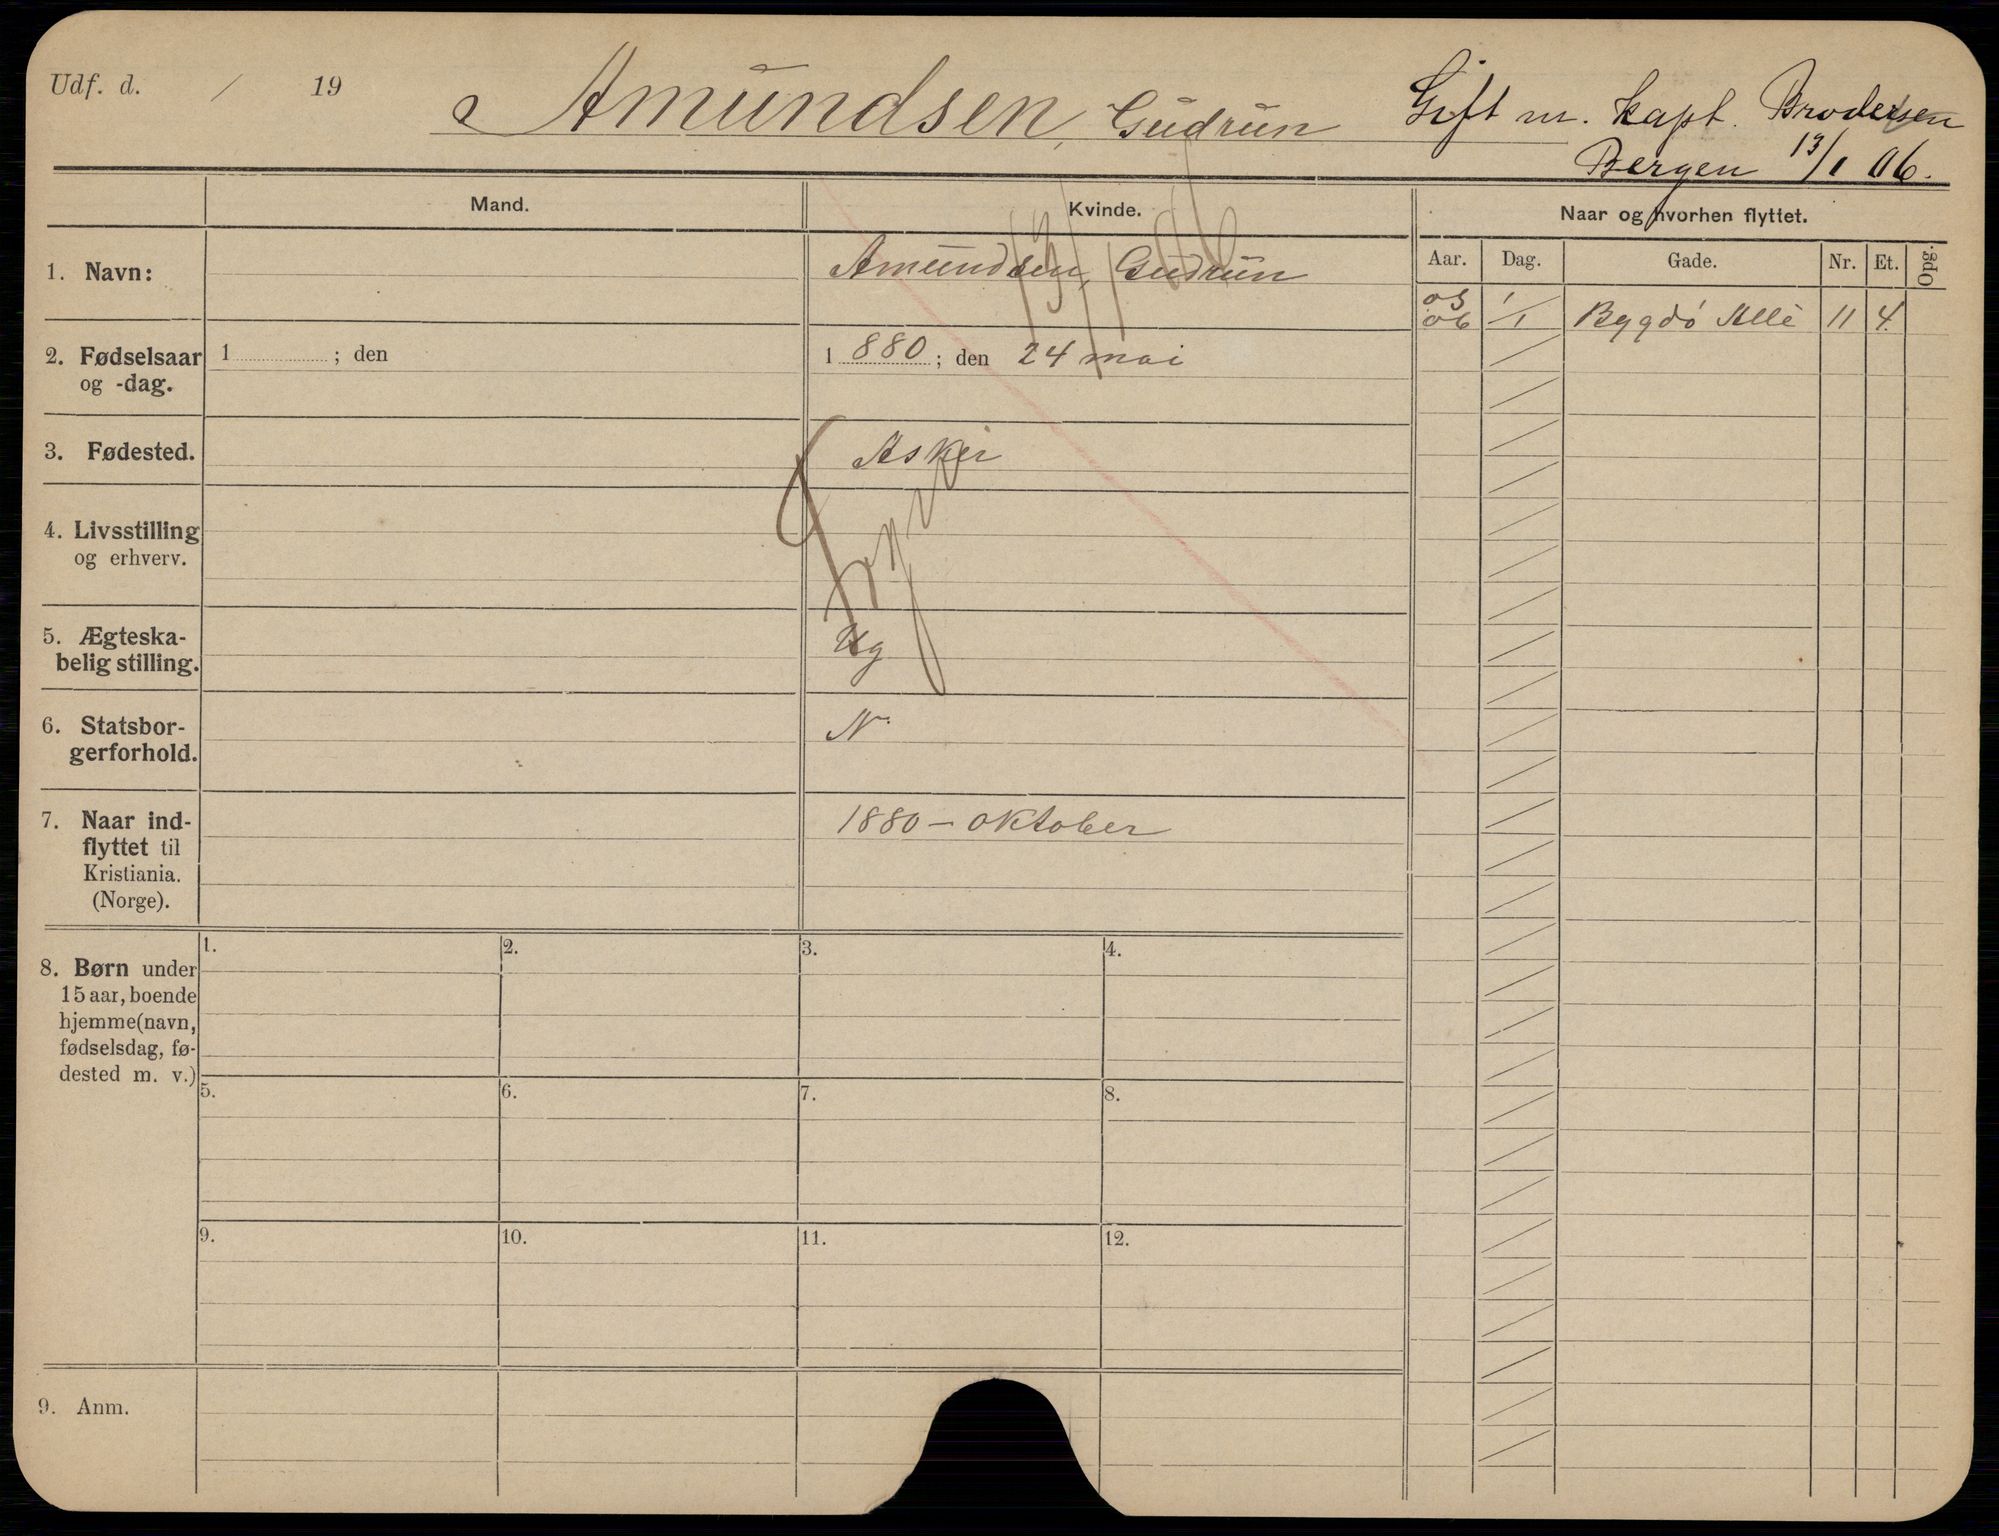 Udf. d. / 19
Amundsen, Gudrun
Gift m. kapt. Brodersen
Bergen 13/1 06.
Mand.
Kvinde.
Naar og hvorhen flyttet.
Aar. Dag. Gade. Nr. Et. Opg.
05
06 1/1 Bygdö Allé 11 4
1. Navn:
Amundsen, Gudrun
13/1 06
2. Fødselsaar
og -dag.
1 ; den
1 880 ; den 24 mai
3. Fødested.
Asker
4. Livsstilling
og erhverv.
5. Ægteska-
belig stilling.
Ug
6. Statsbor-
gerforhold.
N.
7. Naar ind-
flyttet til
Kristiania.
(Norge).
1880 - oktober
8. Børn under
15 aar, boende
hjemme (navn,
fødselsdag, fø-
dested m. v.)
1. 2. 3. 4.
5. 6. 7. 8.
9. 10. 11. 12.
9. Anm.